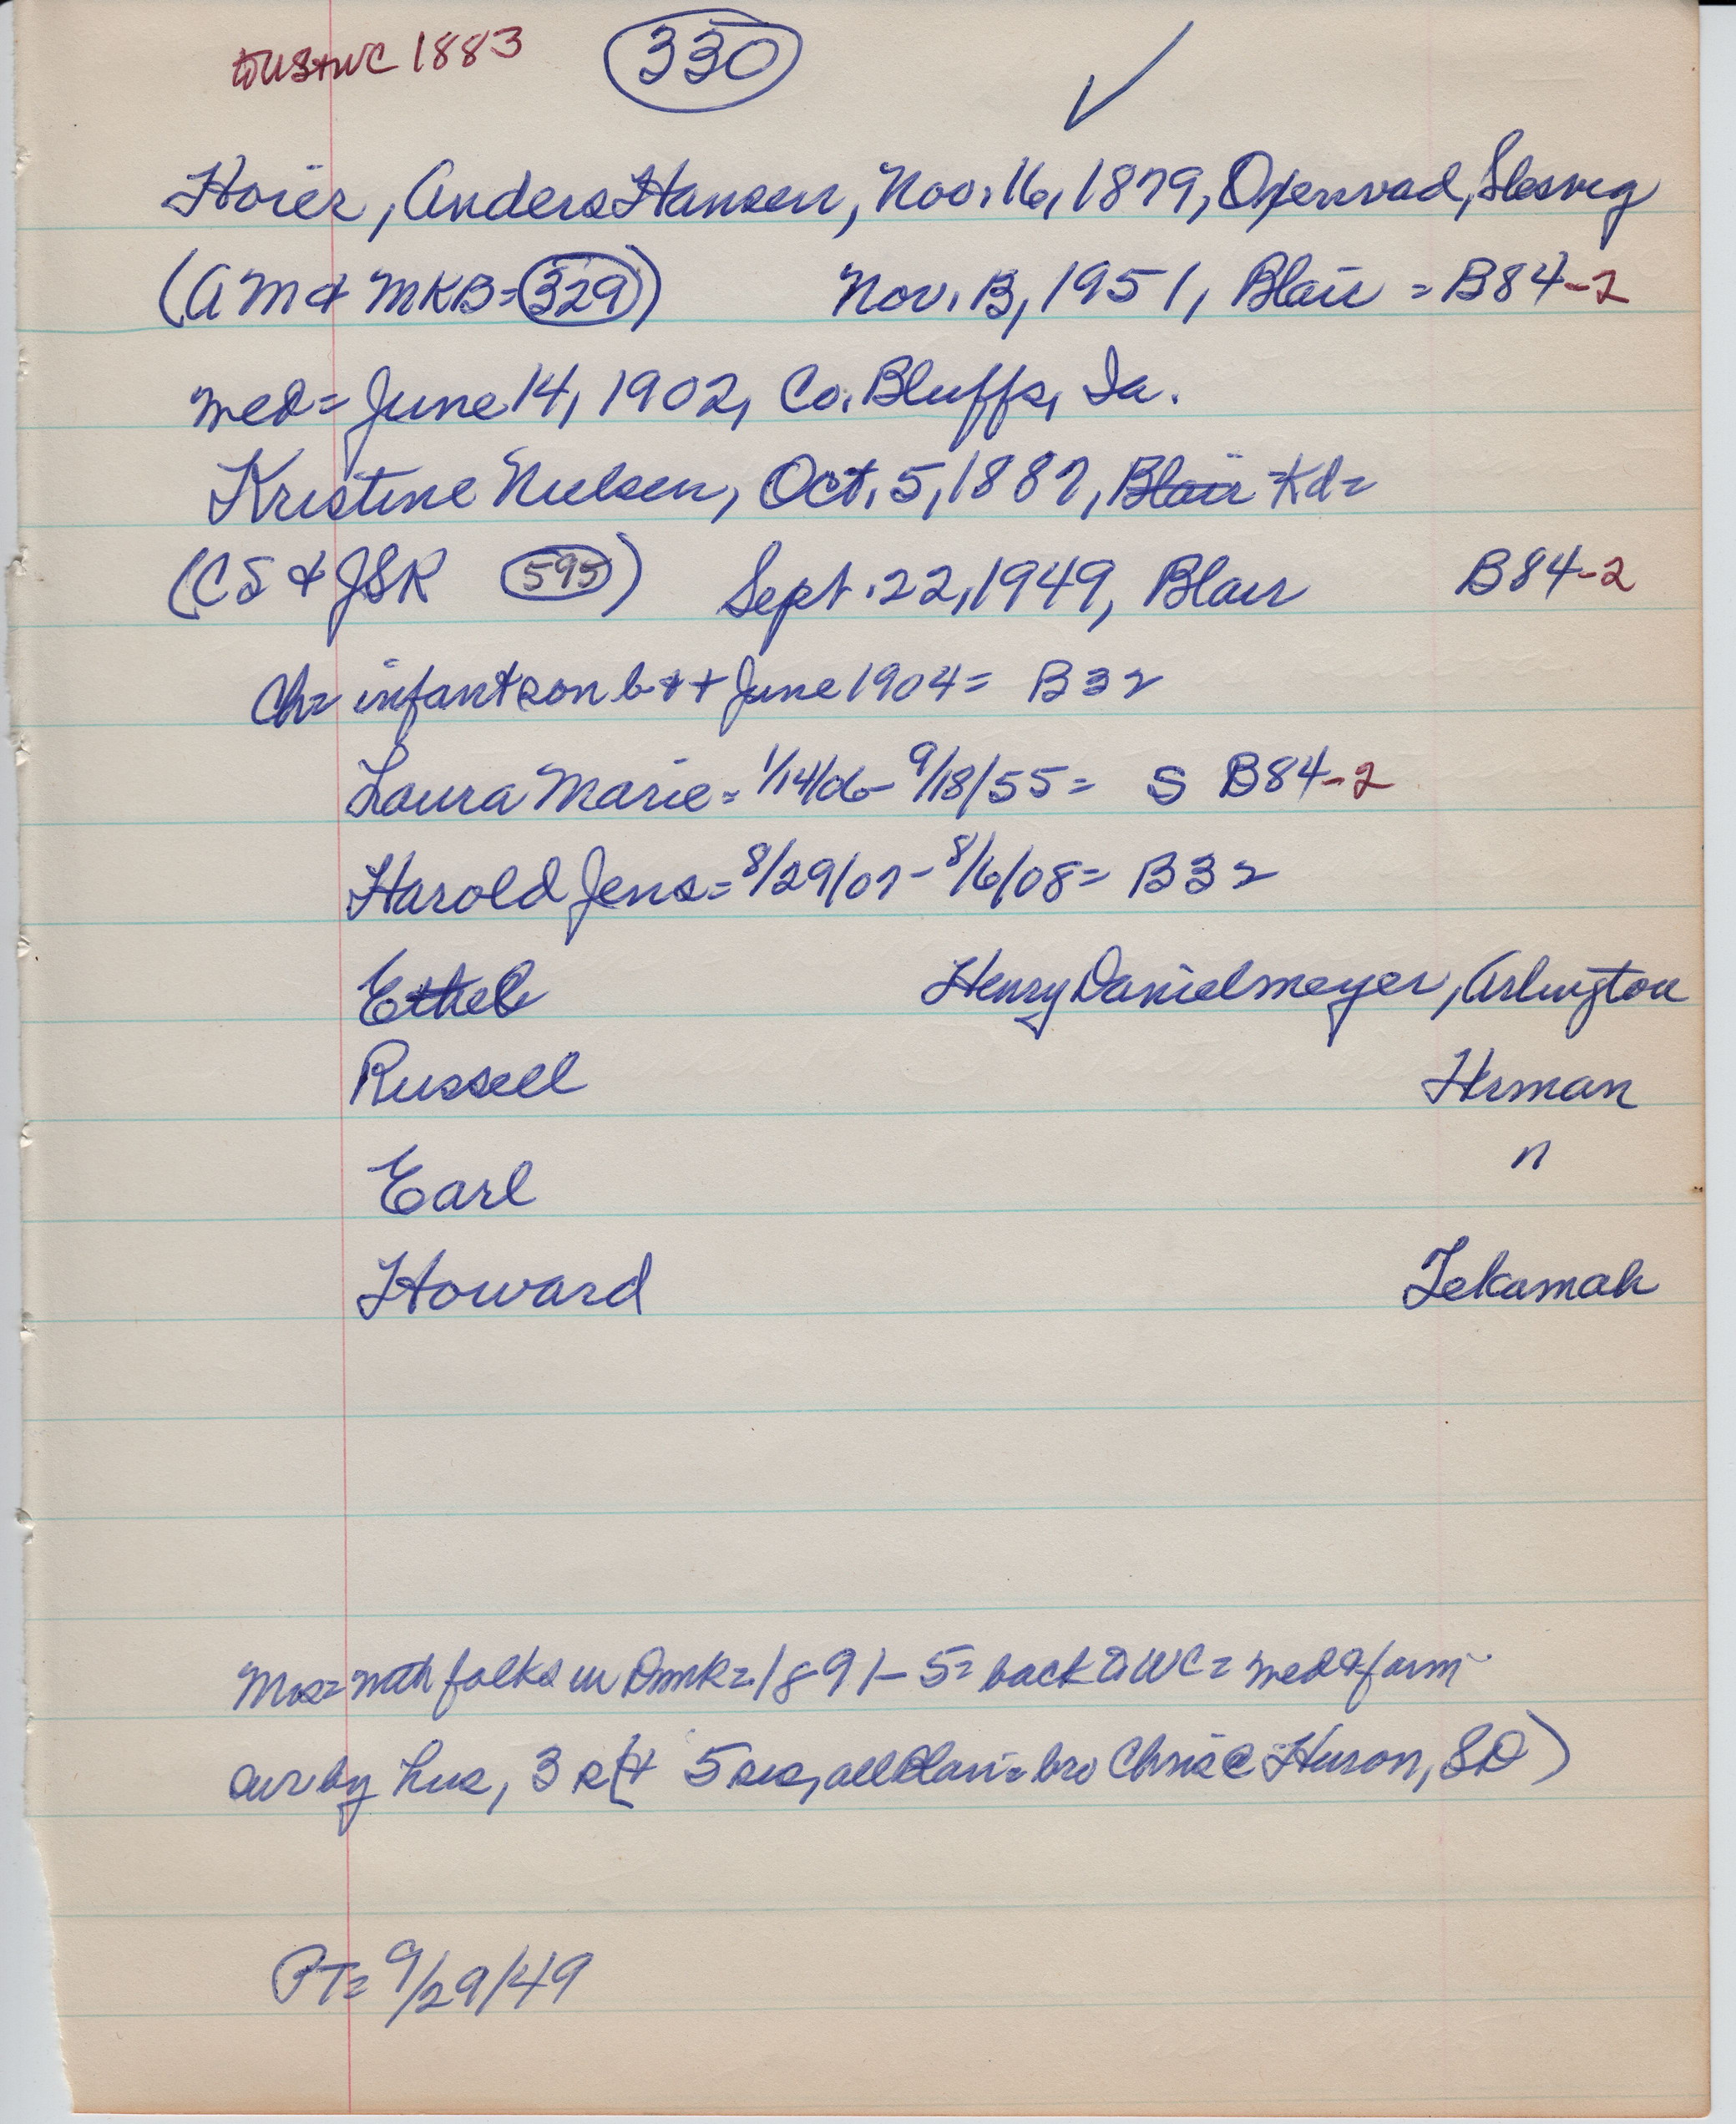 to US + WC 1883 330 ✓
Hoier, Anders Hansen, Nov. 16, 1879, Oxenvad, Slesvig
(AM + MKB = 329) Nov. 13, 1951, Blair = B84-2
med = June 14, 1902, Co. Bluffs, Ia.
Kristine Nielsen, Oct. 5, 1887, Blair Kd=
(CS + JSR 595) Sept. 22, 1949, Blair B84-2
Ch= infant son b + + June 1904 = B32
Laura Marie = 1/14/06 - 9/18/55 = S B84-2
Harold Jens = 8/29/07 - 8/6/08 = B32
Ethel Henry Danielmeyer, Arlington
Russell Herman
Earl "
Howard Tekamah
Mrs = with folks in Dmk = 1891-5 = back to WC = med + farm
sur by hus, 3 s (+ 5 sis, all Blair = bro Chris @ Huron, SD)
PT = 9/29/49